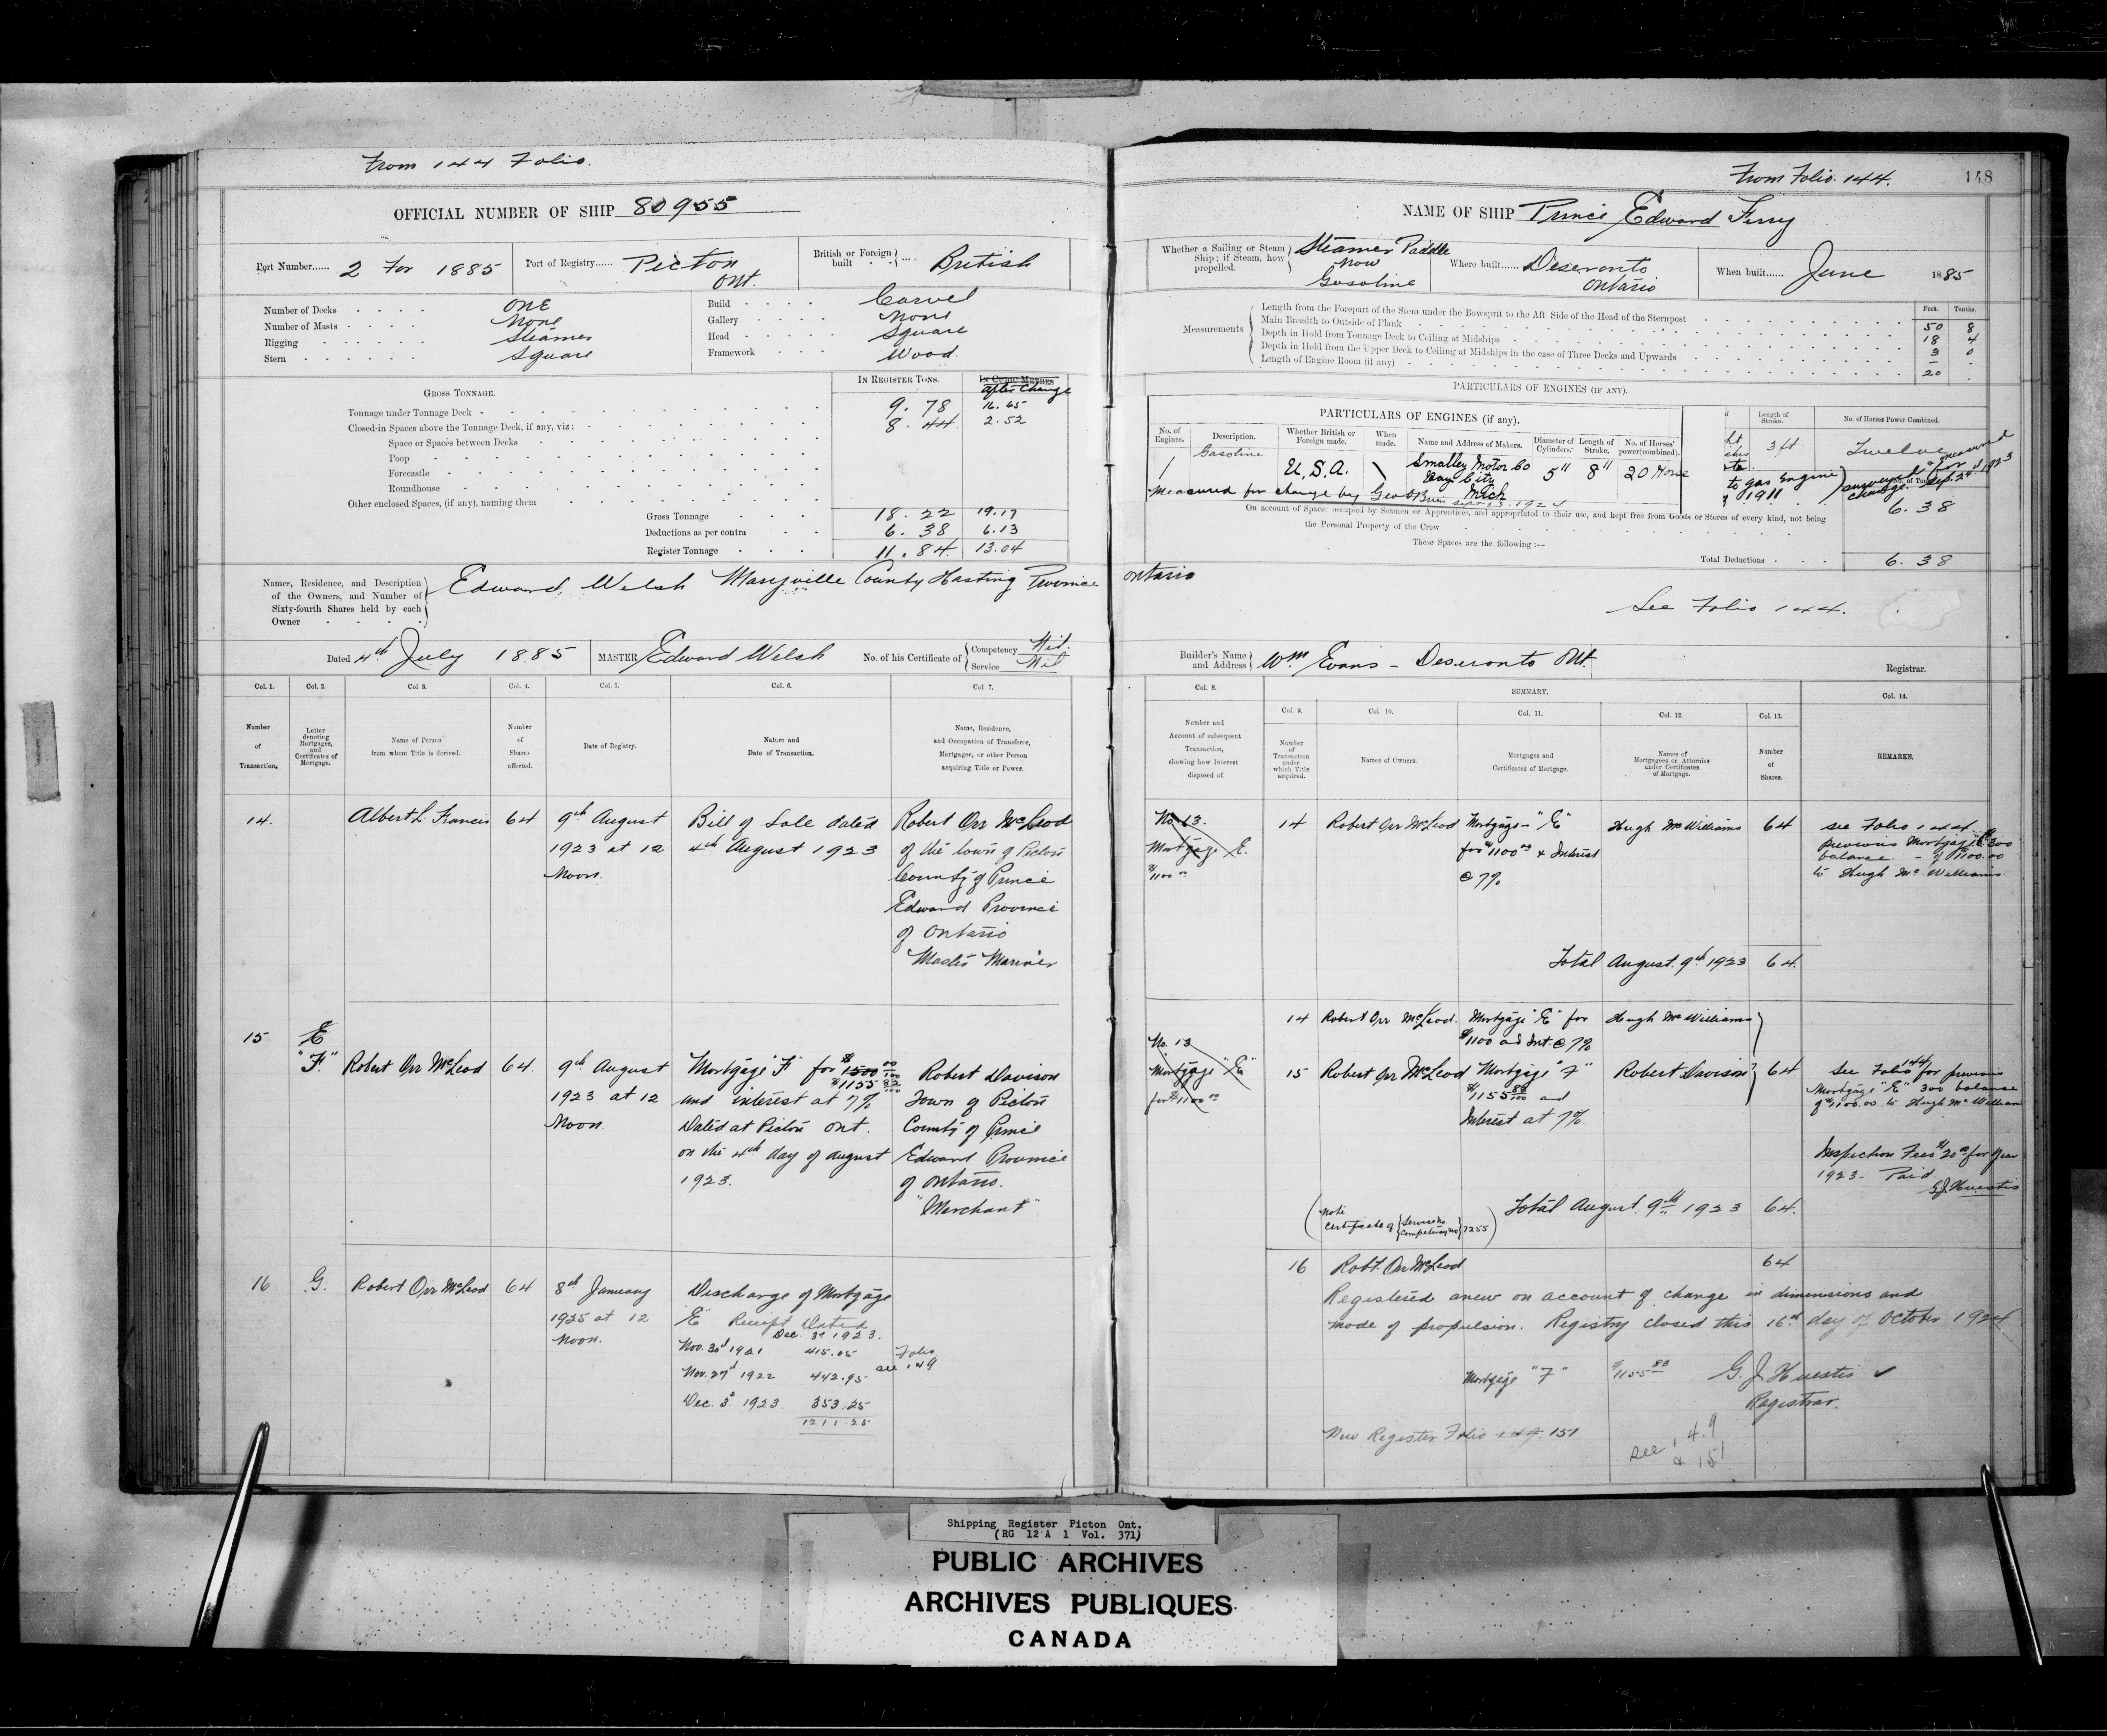 From 144 Folio.
OFFICIAL NUMBER OF SHIP 80955
Port Number...... 2 For 1885
Port of Registry...... Picton Ont.
British or Foreign built .... British
Number of Decks One
Number of Masts None
Rigging Steamer
Stern Square
Build Carvel
Gallery None
Head Square
Framework Wood.
GROSS TONNAGE.
IN REGISTER TONS.
IN CUBIC METRES
after Change
Tonnage under Tonnage Deck 9.78 16.65
Closed-in Spaces above the Tonnage Deck, if any, viz: 8.44 2.52
Space or Spaces between Decks
Poop
Forecastle
Roundhouse
Other enclosed Spaces, (if any), naming them
Gross Tonnage 18.22 19.17
Deductions as per contra 6.38 6.13
Register Tonnage 11.84 13.04
Names, Residence, and Description of the Owners, and Number of Sixty-fourth Shares held by each Owner
Edward Welsh Marysville County Hasting Province
Dated 4th July 1885
MASTER Edward Welsh
No. of his Certificate of Competency Nil. Service Nil
Col. 1. Col. 2. Col 3. Col. 4. Col. 5. Col. 6. Col 7.
Number of Transaction.
Letter denoting Mortgages, and Certificates of Mortgage.
Name of Person from whom Title is derived.
Number of Shares affected.
Date of Registry.
Nature and Date of Transaction.
Name, Residence, and Occupation of Transferee, Mortgagee, or other Person acquiring Title or Power.
14. Albert L. Francis 64 9th August Bill of Sale dated Robert Orr McLeod
1923 at 12 4th August 1923 of the town of Picton
Noon. County of Prince
Edward Province
of Ontario
"Master Mariner
15 E
"F." Robert Orr McLeod 64. 9th August Mortgage "F" for $1500 00/100 Robert Davison
$1155 83/100
1923 at 12 and interest at 7% Town of Picton
Noon. Dated at Picton Ont. County of Prince
on the 4th day of August Edward Province
1923. of Ontario.
"Merchant"
16 G. Robert Orr McLeod 64 8th January Discharge of Mortgage
1925 at 12 "E" Receipt Dated
Noon. Dec. 3d 1923.
Nov. 30d 1921 415.05 Folio
Nov. 27d 1922 442.95 see 149
Dec. 3d 1923 353.25
1211.25
From Folio. 144.
148
NAME OF SHIP Prince Edward Ferry
Whether a Sailing or Steam Ship; if Steam, how propelled.
Steamer Paddle
Now
Gasoline
Where built...... Deseronto Ontario
When built...... June 1885
Measurements
Feet. Tenths.
Length from the Forepart of the Stem under the Bowsprit to the Aft Side of the Head of the Sternpost 50 8
Main Breadth to Outside of Plank 18 4
Depth in Hold from Tonnage Deck to Ceiling at Midships 3 0
Depth in Hold from the Upper Deck to Ceiling at Midships in the case of Three Decks and Upwards -
Length of Engine Room (if any) 20
PARTICULARS OF ENGINES (IF ANY).
PARTICULARS OF ENGINES (if any).
No. of Engines.
Description.
Whether British or Foreign made.
When made.
Name and Address of Makers.
Diameter of Cylinders.
Length of Stroke.
No. of Horses' power (combined).
1 Gasoline U.S.A. Smalley Motor Co Bay City Mich 5" 8" 20 Horse
Measured for change by Geo OBrien Sept 23. 1924
Length of Stroke.
No. of Horses Power Combined.
3 ft. Twelve
to gas Engine
1911
6.38
On account of Space occupied by Seamen or Apprentices, and appropriated to their use, and kept free from Goods or Stores of every kind, not being
the Personal Property of the Crew
These Spaces are the following :—
Total Deductions 6.38
Ontario
See Folio 144.
Builder's Name and Address Wm Evans - Deseronto Ont.
Registrar.
Col. 8. SUMMARY. Col. 14.
Col. 9. Col. 10. Col. 11. Col. 12. Col. 13.
Number and Account of subsequent Transaction, showing how Interest disposed of.
Number of Transaction under which Title acquired.
Names of Owners.
Mortgages and Certificates of Mortgage.
Names of Mortgagees or Attornies under Certificates of Mortgage.
Number of Shares.
REMARKS.
No. 13. 14 Robert Orr McLeod Mortgage "E" Hugh McWilliams 64 see Folio 144
Mortgage E. for $1100 00 & Interest previous Mortgage "E" 300
$1100 00 @ 7% balance - of $1100.00
to Hugh McWilliams.
Total August. 9th 1923 64.
14 Robert Orr McLeod. Mortgage "E" for Hugh McWilliams
No. 13 $1100 and Int. @ 7%
Mortgage "E" 15 Robert Orr McLeod "Mortgage "F" Robert Davison 64 See Folio 144 for previous
for $1100 00 $1155 83/100 and Mortgage "E" 300 balance
Interest at 7%. of $1100.00 to Hugh McWilliam
Inspection Fees $20 00 for year
1923 - Paid
G.J. Huestis
Note Certificate of Service No Competency No 7255
Total August. 9th 1923 64.
16 Robt. Orr McLeod 64
Registered anew on account of change in dimensions and
mode of propulsion. Registry closed this 16th day of October 1924
Mortgage "F" $1155 83
G. J. Huestis
Registrar.
New Register Folio 149. 151
see 149
& 151
Shipping Register Picton Ont.
(RG 12 A 1 Vol. 371)
PUBLIC ARCHIVES
ARCHIVES PUBLIQUES
CANADA